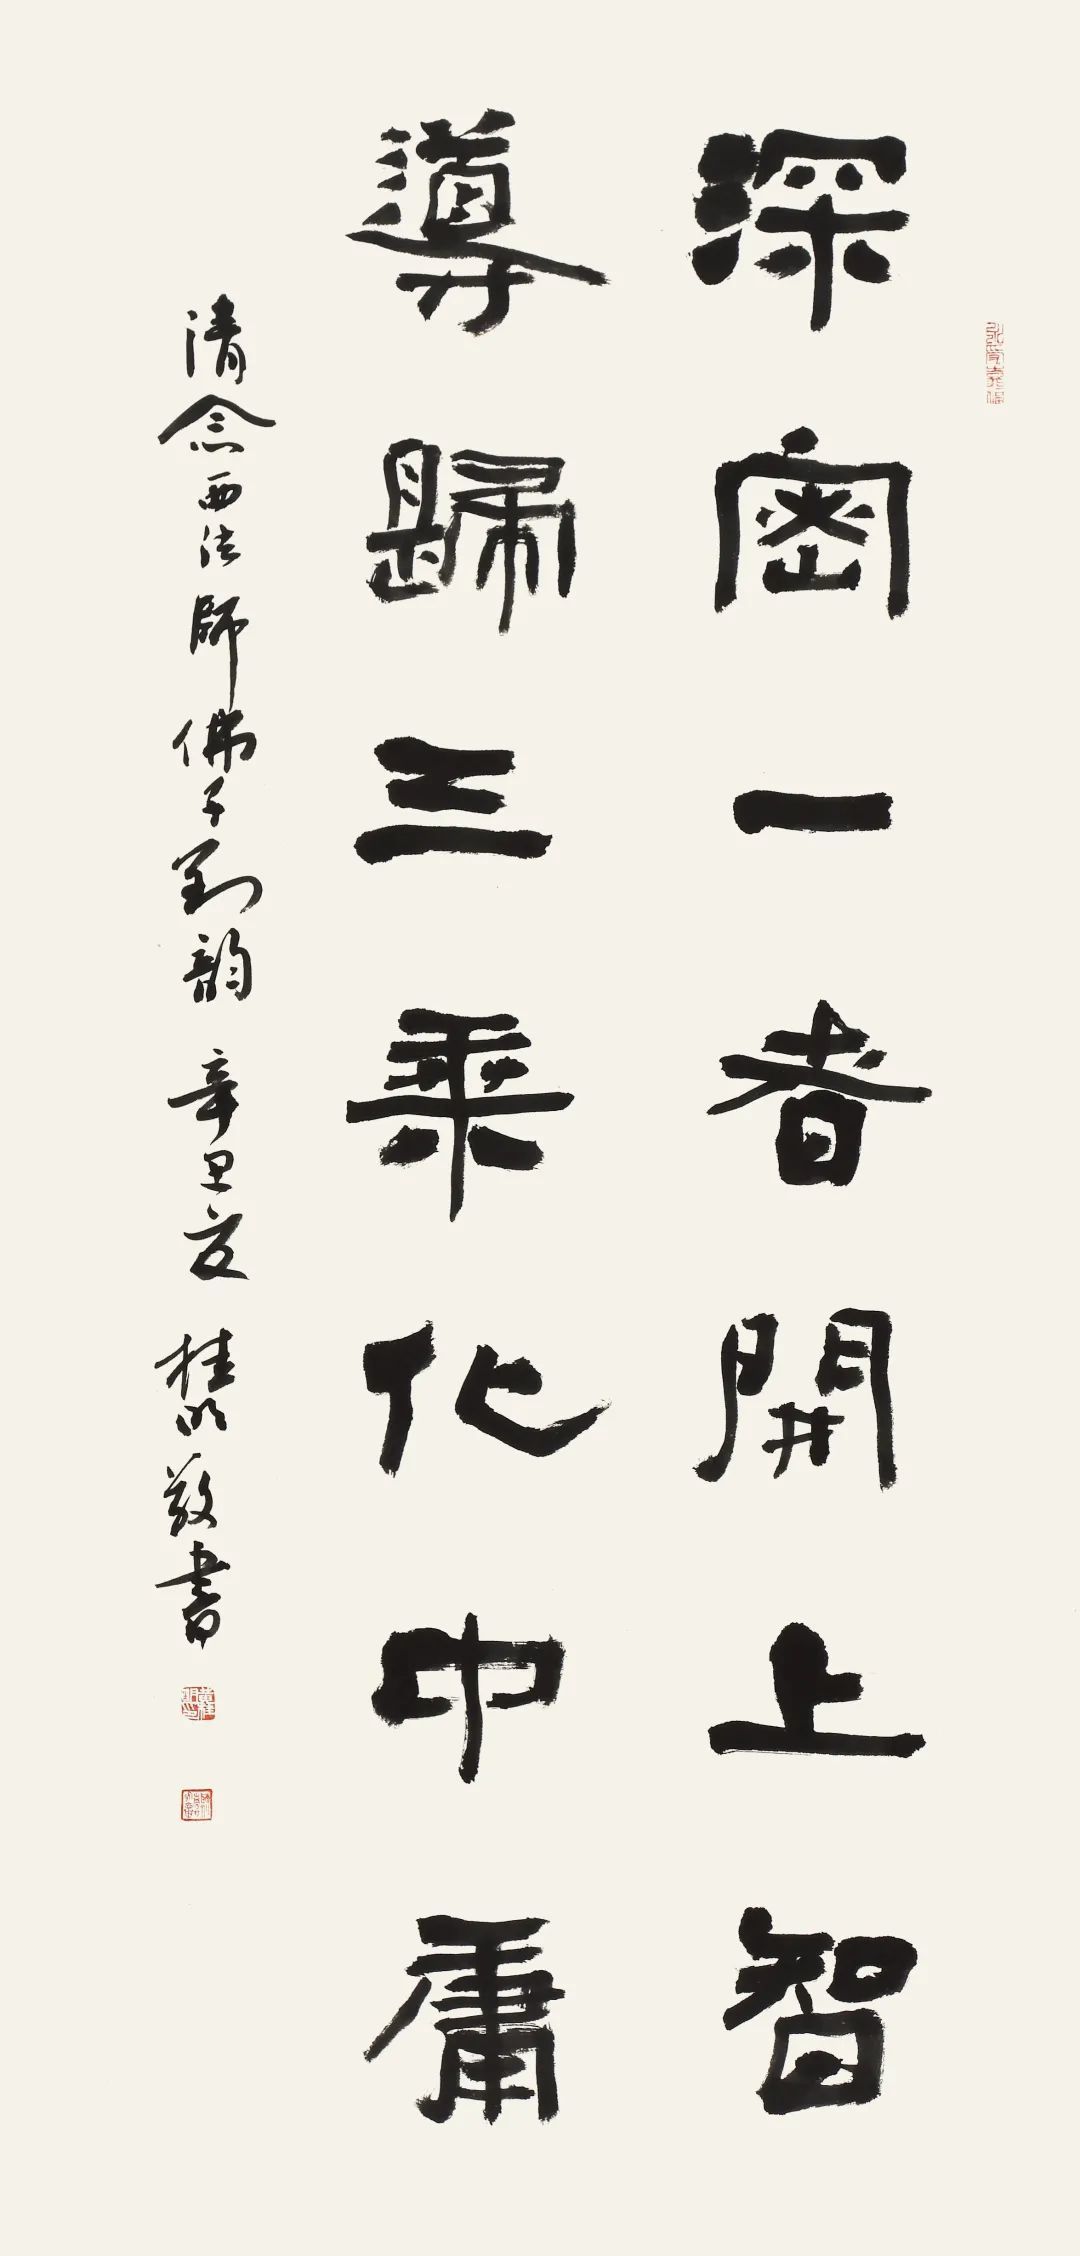 深密一者開上智
導歸三乘化中庸
清念西法師佛子對韵 辛丑夏 桂明敬書